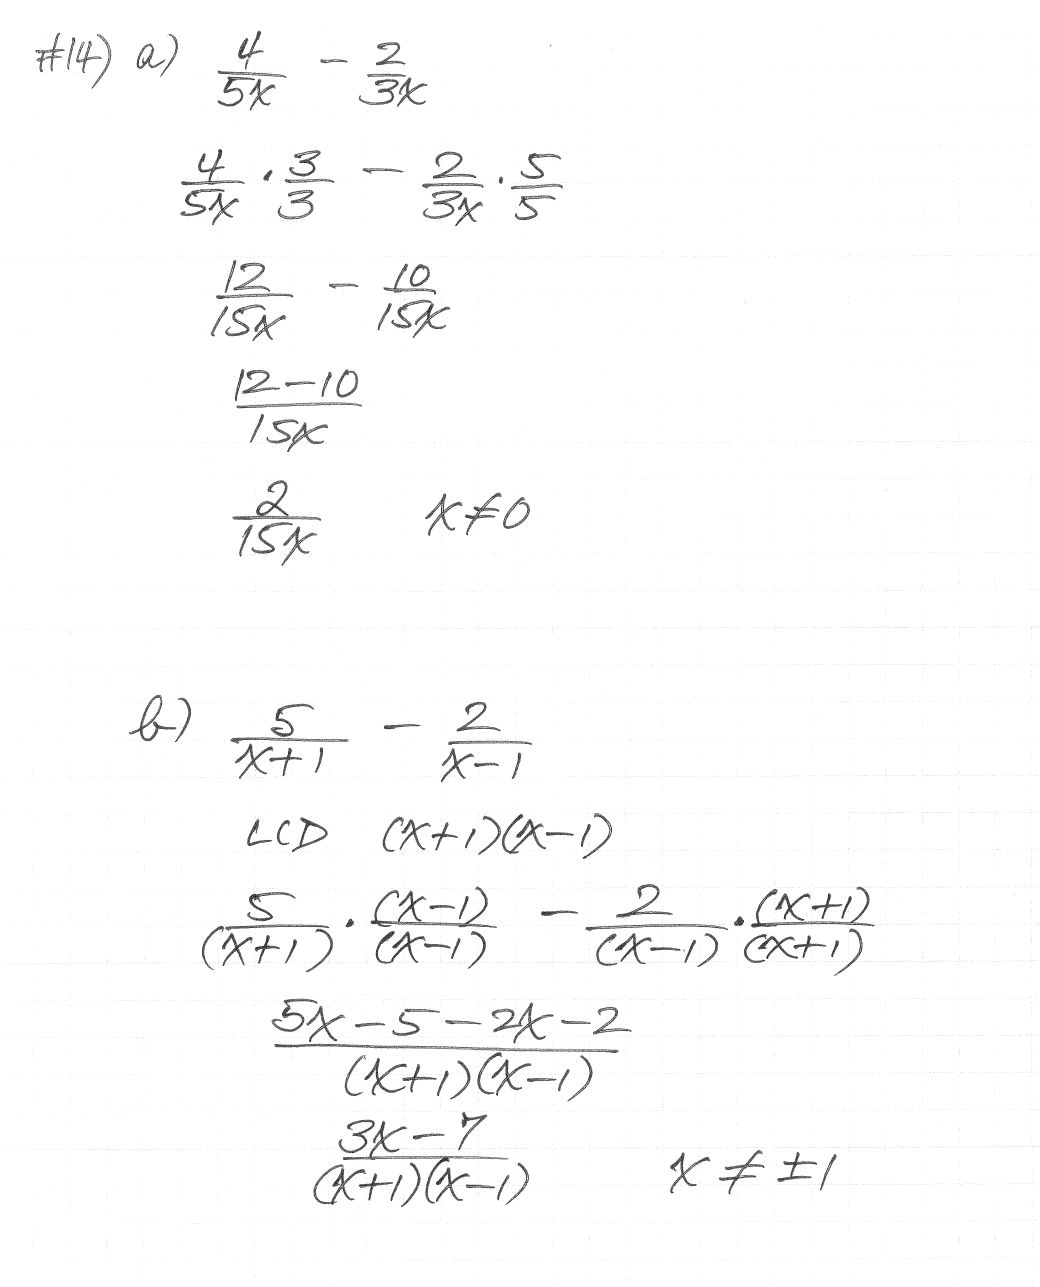 #14) a) 4/5x - 2/3x
4/5x · 3/3 - 2/3x · 5/5
12/15x - 10/15x
12-10/15x
2/15x x≠0
b) 5/x+1 - 2/x-1
LCD (x+1)(x-1)
5/(x+1) · (x-1)/(x-1) - 2/(x-1) · (x+1)/(x+1)
5x-5-2x-2/(x+1)(x-1)
3x-7/(x+1)(x-1) x≠±1